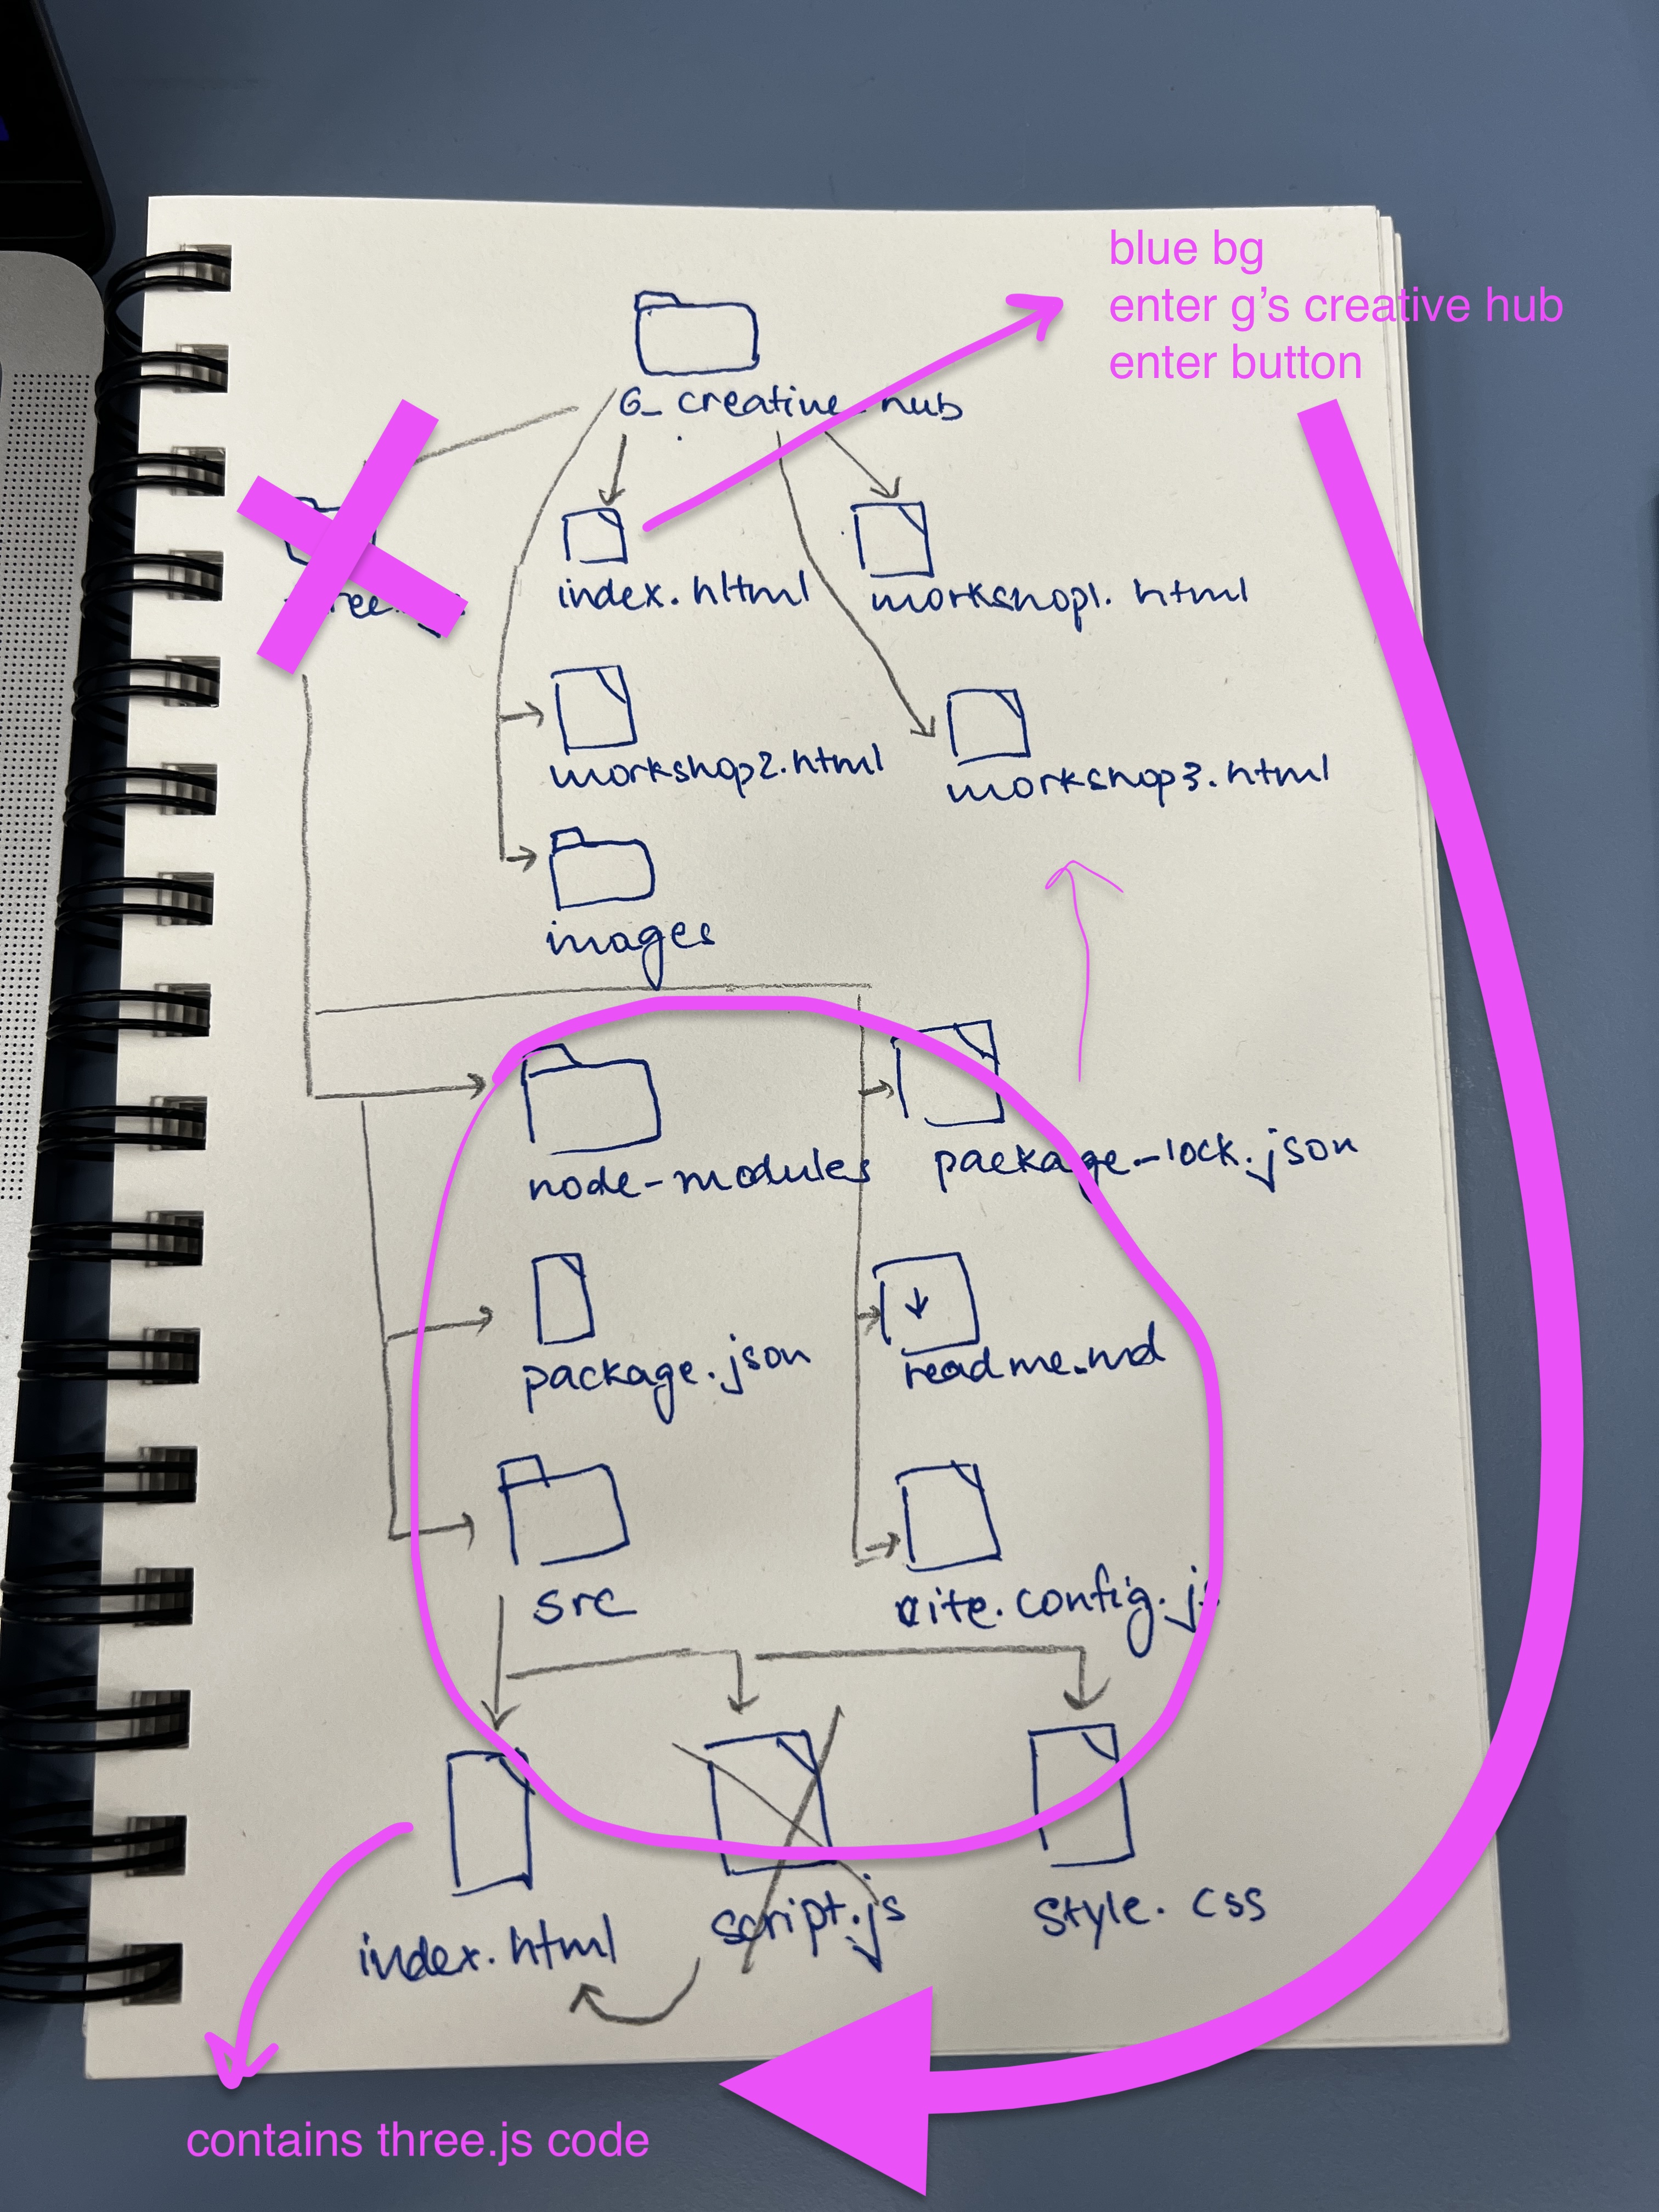 blue bg
enter g's creative hub
enter button
G_ creative_hub
index.hltml
workshop1.html
workshop2.html
workshop3.html
images
node-modules
package.-lock.json
package.json
readme.md
src
vite.config.js
index.html
script.js
style.css
contains three.js code